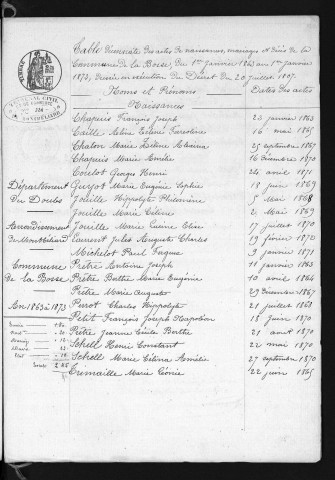 Table décennale des actes de naissance, mariage et décès de la
Commune de la Bosse, du 1er Janvier 1863 au 1er Janvier
1873, dressée en exécution du Décret du 20 Juillet 1807.
Noms et Prénoms
Dates des actes
Naissances
Chapuis François Joseph 23 janvier 1863
Caille 16 mai 1865
Chalon Marie Alvina 25 septembre 1867
Chapuis Marie Amélie 16 décembre 1870
Courlot Georges Henri 24 avril 1871
Département
du Doubs
Guyot Marie Eugénie Sophie 18 juin 1869
Jouille Hippolyte Philomène 5 Mai 1868
Jouille Marie Celina 2 Mai 1869
Arrondissement
de Montbéliard
Jouille Marie Lucine Elise 17 juillet 1870
Laurent Jules Auguste Charles 19 février 1872
Michelot Paul 9 janvier 1871
Commune
de la Bosse
Prêtre Antoine Joseph 11 janvier 1863
Prêtre Berthe Marie Eugénie 10 avril 1864
Prêtre Marie Auguste 29 décembre 1867
An 1863 à 1873
Perrot Charles Hippolyte 21 juillet 1868
Petit François Joseph Napoléon 18 juin 1870
Prêtre Jeanne Emilie Berthe 21 août 1870
Schell Henri Constant 22 mai 1870
Schell Marie Célina Amélie 27 septembre 1870
Trimaille Marie Léonie 22 juin 1865